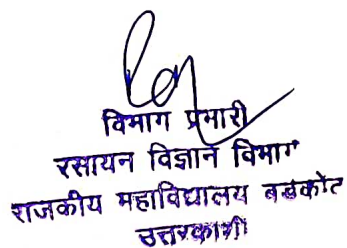 विभाग प्रभारी
रसायन विज्ञान विभाग
राजकीय महाविद्यालय बड़कोट
उत्तरकाशी